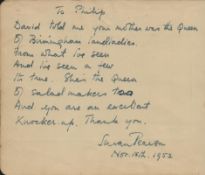 To Philip
David told me your mother was the Queen
Of Birmingham landladies.
From what I've seen
And I've seen a few
It's true. She's the Queen
Of salad makers too
And you are an excellent
Knocker up. Thank you.
Susan Pearson
Nov. 14th. 1952